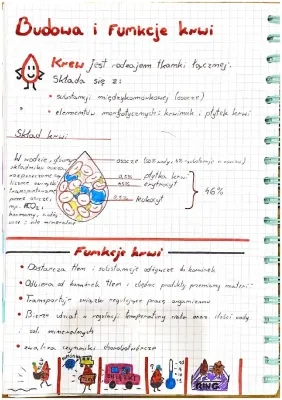 Budowa i Funkcje krwi
Krew jest rodzajem tkanki łącznej.
Składa się z:
• substancji międzykomórkowej (osocze)
• elementów morfotycznych: krwinek i płytek krwi
Skład krwi
W wodzie, głównym
składniku osocza
rozpuszczone są
liczne związki
transportowane
przez osocze;
hormony,
sole mineralne
osocze
płytka krwi
erytrocyt
leukocyt
46%
Funkcje krwi
• Dostarcza tlen i substancje odżywcze do komórek
• Odbiera od komórek tlen i zbędne produkty przemiany materii
• Transportuje związki regulujące pracę organizmu
• Bierze udział w regulacji temperatury ciała oraz ilości wody
i soli mineralnych
• zwalcza czynniki chorobotwórcze
RING